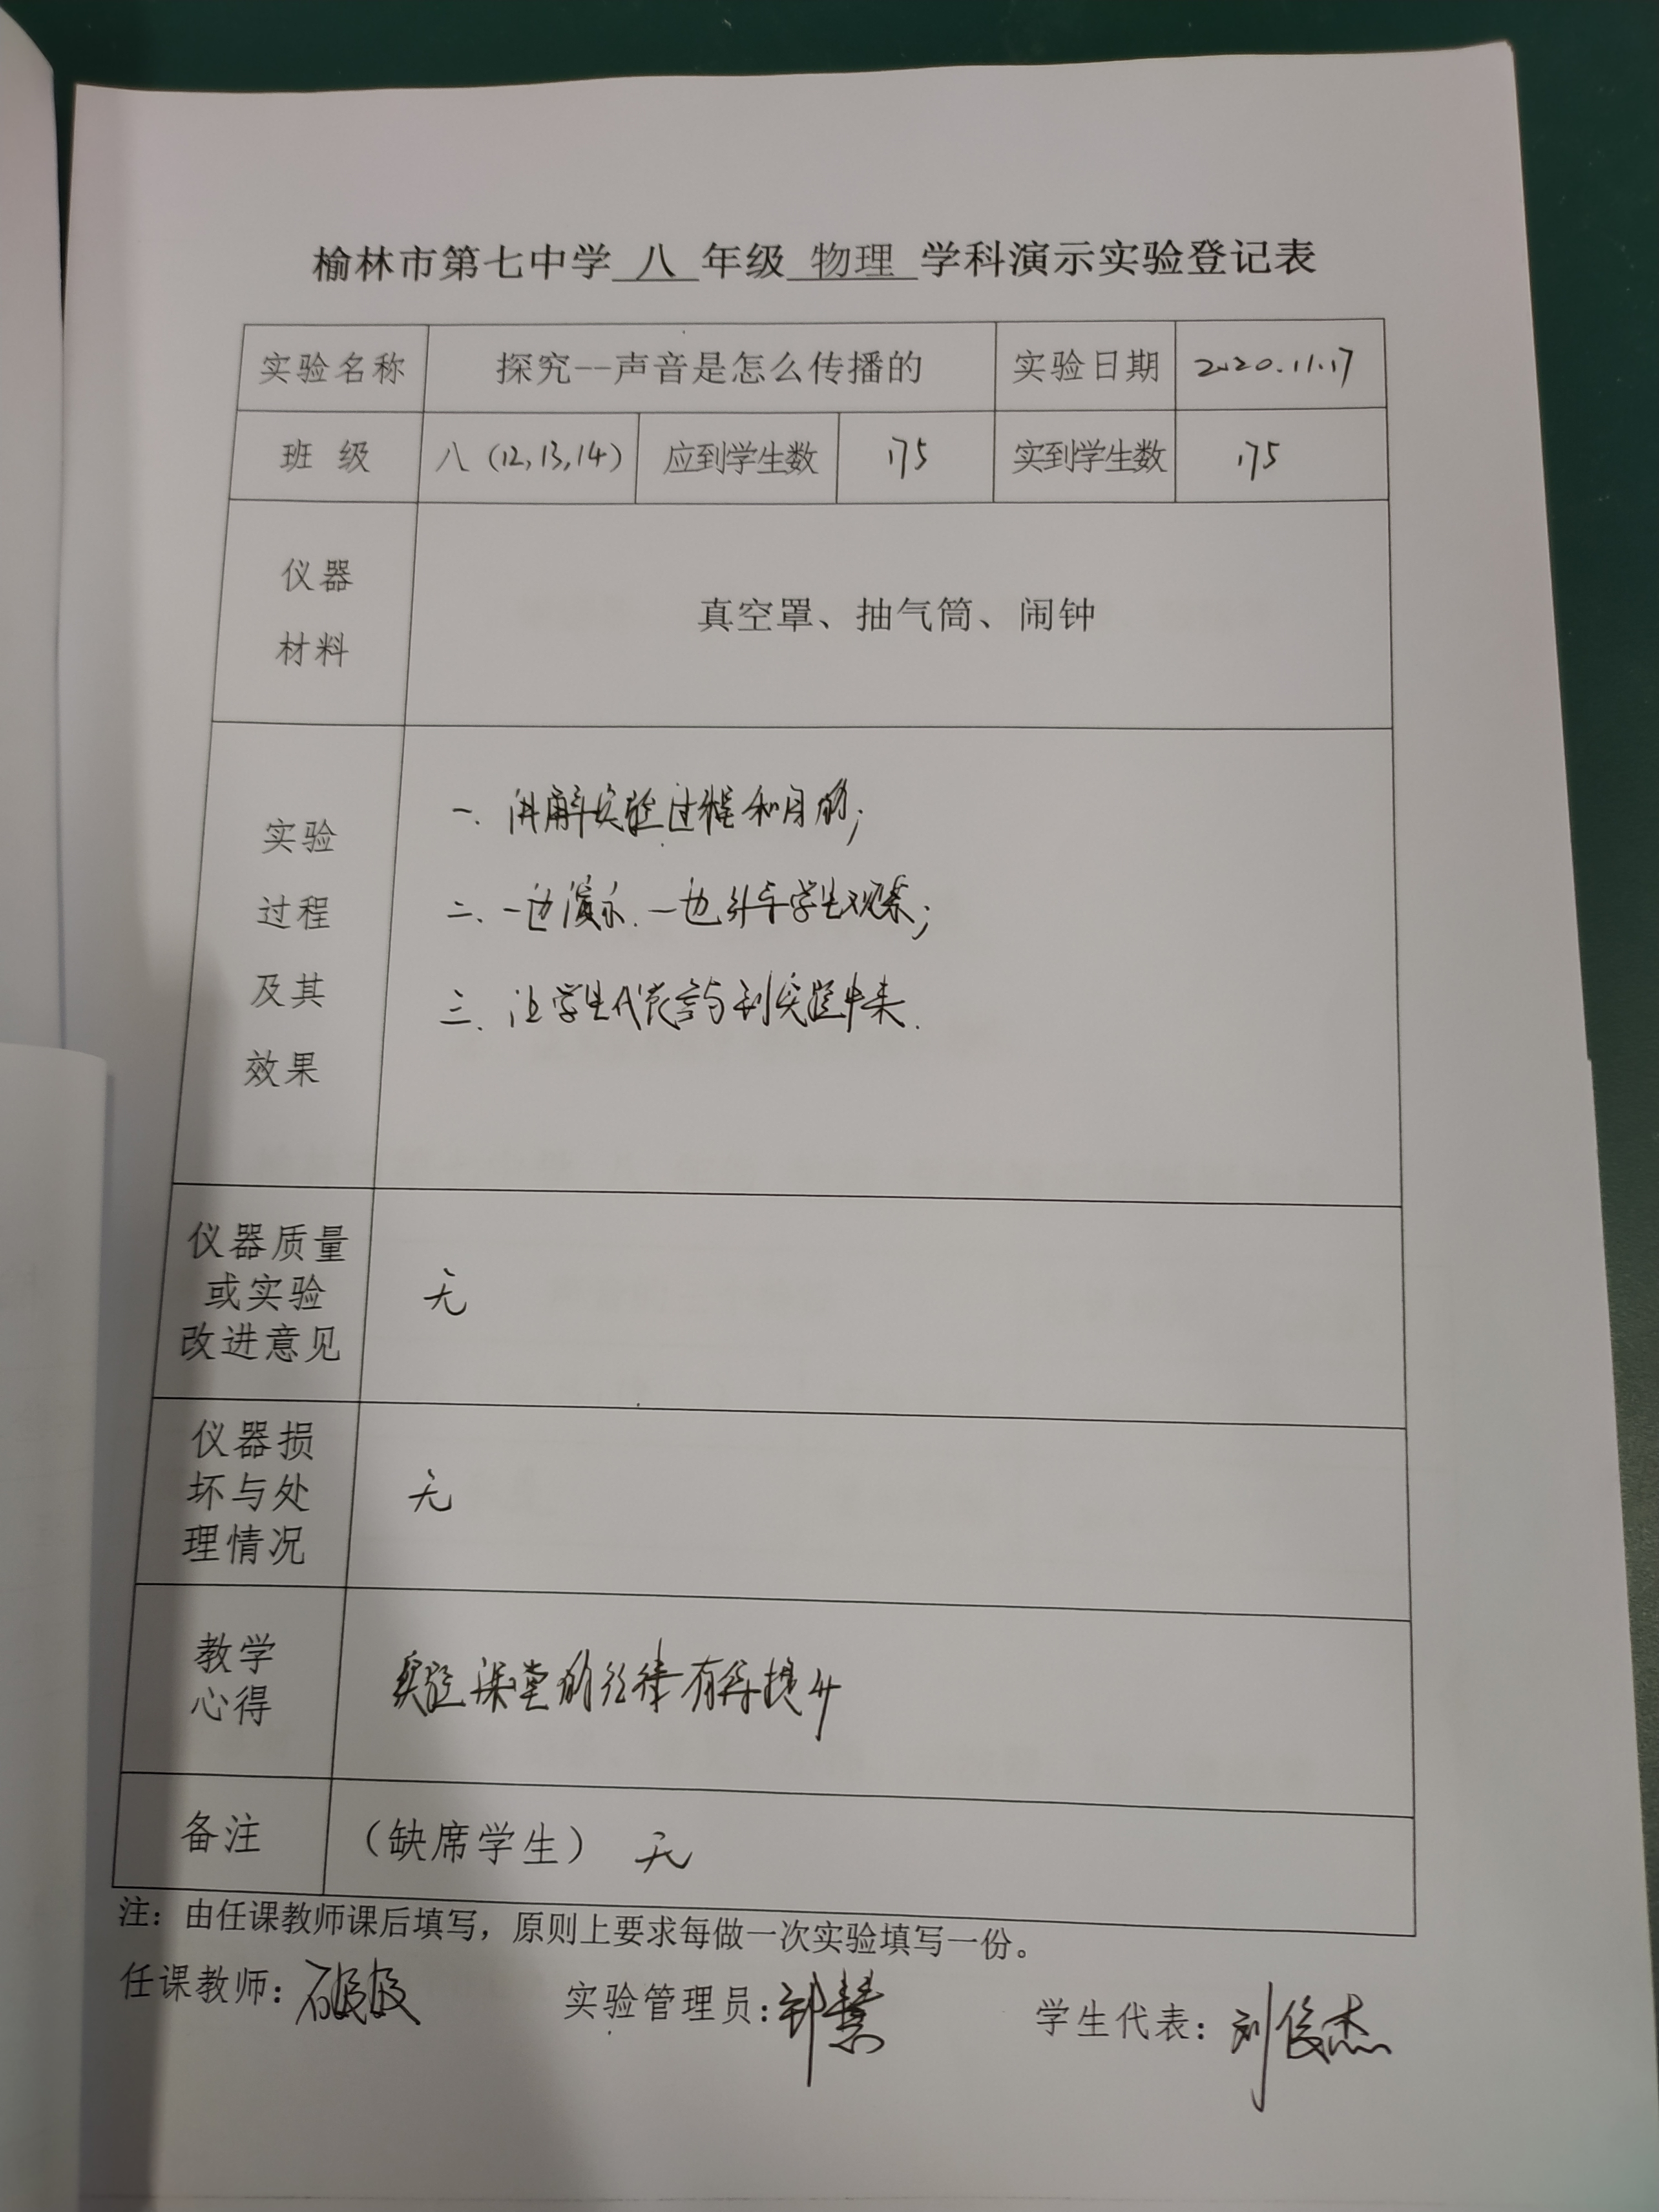 榆林市第七中学 八 年级 物理 学科演示实验登记表
实验名称 探究--声音是怎么传播的 实验日期 2020.11.17
班 级 八（12,13,14） 应到学生数 175 实到学生数 175
仪器
材料
真空罩、抽气筒、闹钟
实验
过程
及其
效果
一、讲解实验过程和目的；
二、一边演示.一边引导学生观察；
三、让学生代表参与到实验中来.
仪器质量
或实验
改进意见
无
仪器损
坏与处
理情况
无
教学
心得
实验课堂的纪律有待提升
备注
（缺席学生） 无
注：由任课教师课后填写，原则上要求每做一次实验填写一份。
任课教师： 实验管理员： 学生代表：刘俊杰